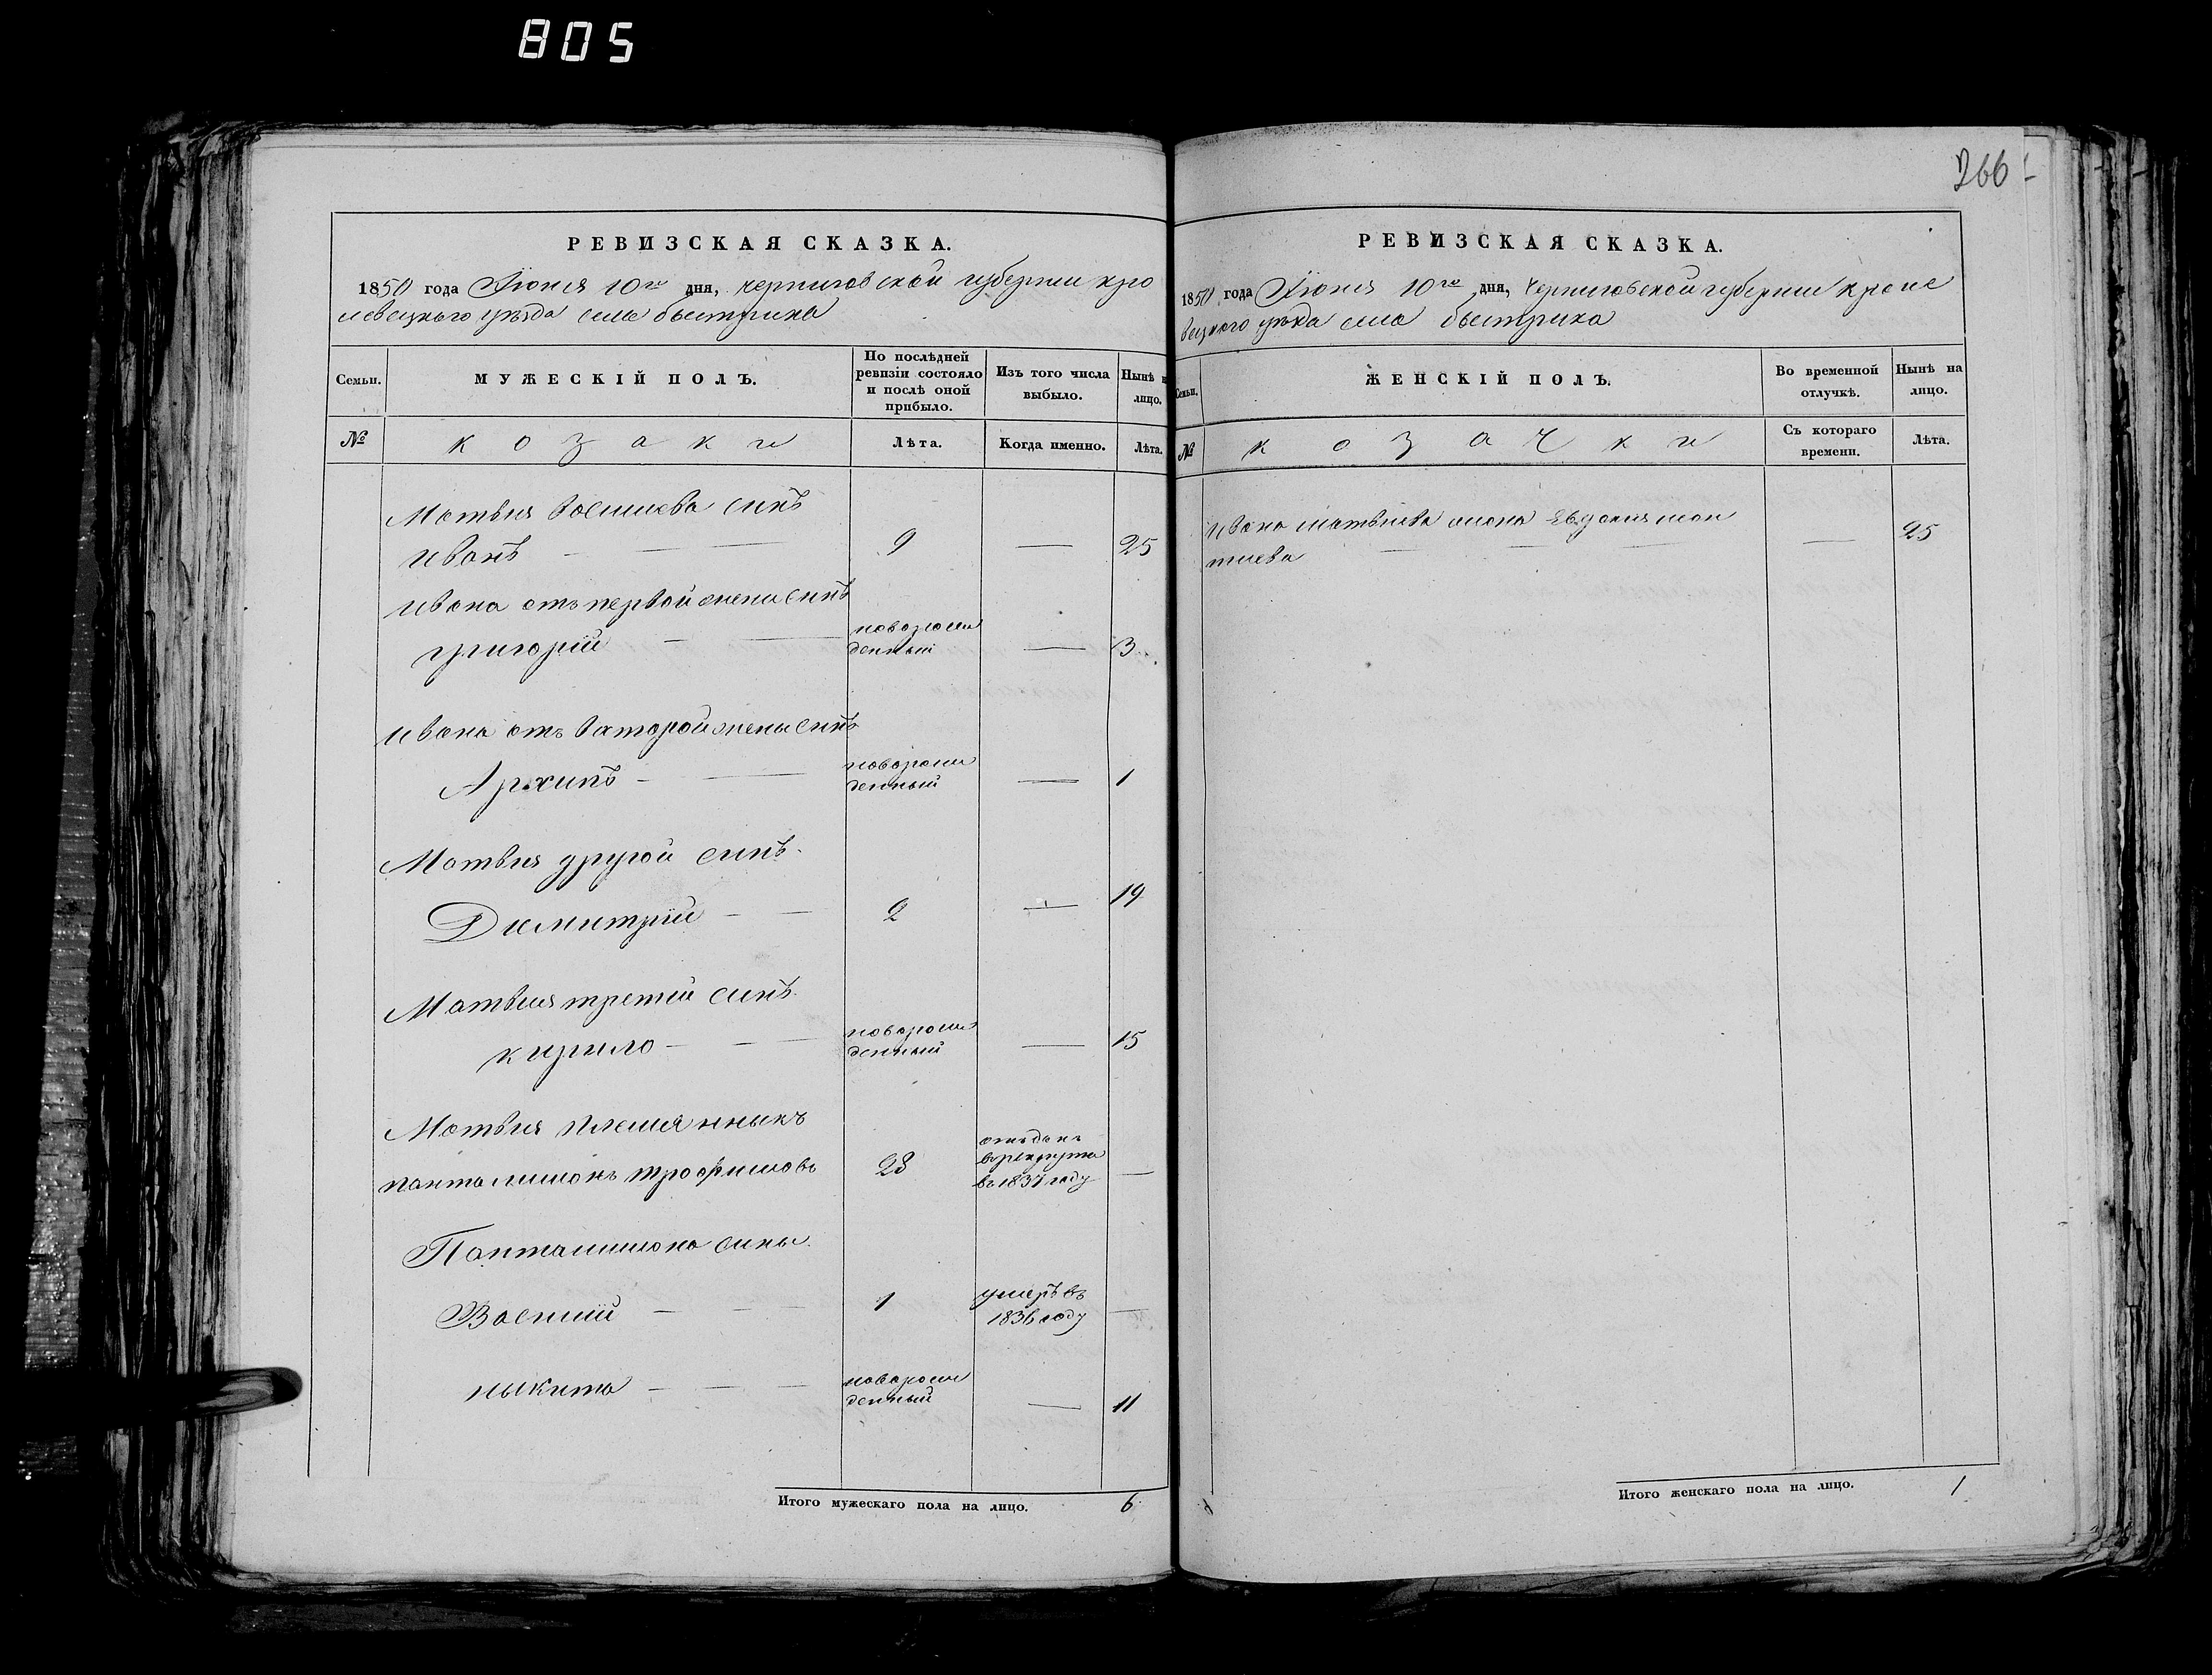 805
266
РЕВИЗСКАЯ СКАЗКА.
1850 года Іюня 10го дня, черниговской губернии кро
левецкого уѣзда села быстрика
Семьи.
МУЖЕСКІЙ ПОЛЪ.
По послѣдней ревизіи состояло и послѣ оной прибыло.
Изъ того числа выбыло.
Нынѣ н лицо.
№
козаки
Лѣта.
Когда именно.
Лѣта.
Матвия Василиева синъ
Иванъ — — — 9 — 25
Ивана отъ первой жени синъ
григорїй — — новорож
денный — 3
Ивана отъ вхторой жены синъ
Архипъ — — новорож
денный — 1
Матвия другой синъ
Димитрїй — — 2 — 19
Матвия третий синъ
кирило — — — новорож
денный — 15
Матвия племянныкъ
панталимонъ трофимовъ 28 отъданъ
в рекруты
въ 1837 году —
Панталимона сины
Василий — — — 1 умеръ въ
1836 году —
ныкита — — — новорож
денный — 11
Итого мужескаго пола на лицо. 6
РЕВИЗСКАЯ СКАЗКА.
1850 года Іюня 10го дня, Черниговской губернии кроле
вецкого уѣзда села быстрика
Семьи.
ЖЕНСКІЙ ПОЛЪ.
Во временной отлучкѣ.
Нынѣ на лицо.
№
козачки
Съ котораго времени.
Лѣта.
Ивана матвиева жена Евдокия
тиева — — — — 25
Итого женскаго пола на лицо. 1